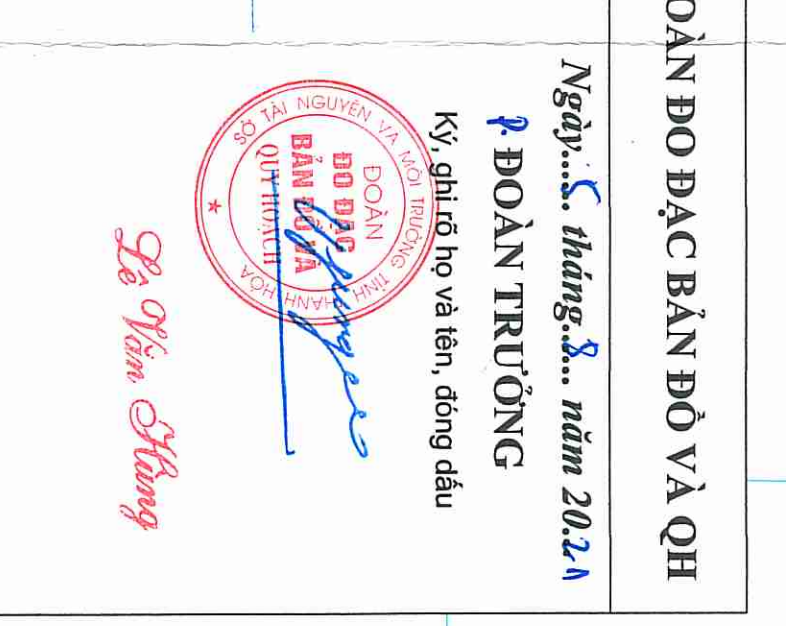 OÀN ĐO ĐẠC BẢN ĐỒ VÀ QH
Ngày...5... tháng..8.... năm 20.21
P. ĐOÀN TRƯỞNG
Ký, ghi rõ họ và tên, đóng dấu
SỞ TÀI NGUYÊN VÀ MÔI TRƯỜNG TỈNH THANH HÓA
ĐOÀN
ĐO ĐẠC
BẢN ĐỒ VÀ
QUY HOẠCH
Lê Văn Hùng